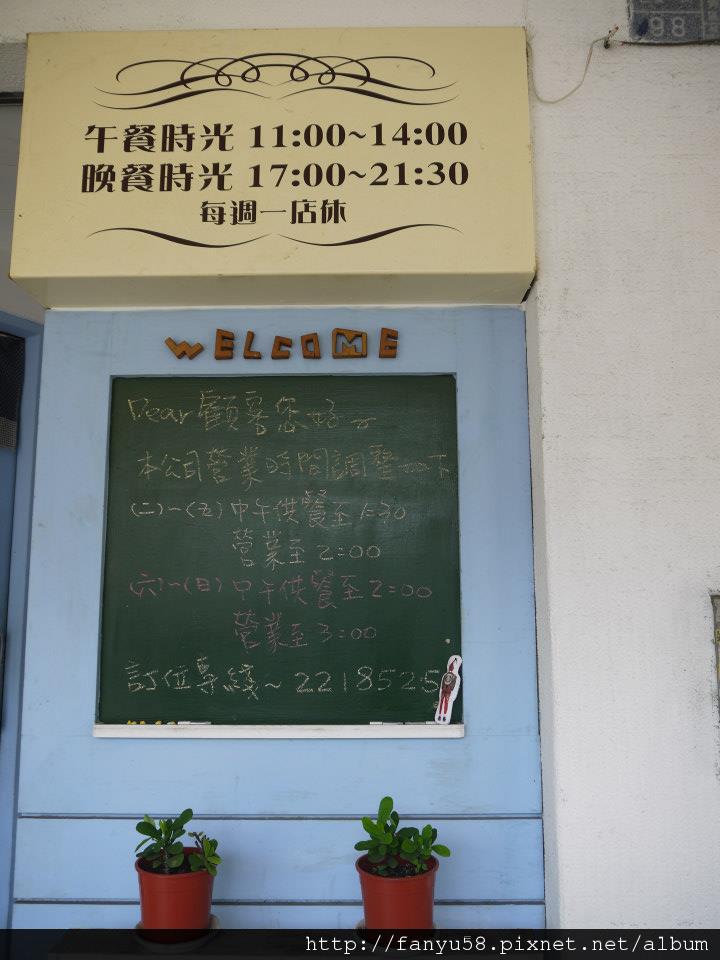 98
午餐時光 11:00~14:00
晚餐時光 17:00~21:30
每週一店休
WELCOME
Dear 顧客您好~
本公司營業時間調整如下
(二)~(五) 中午供餐至1=30
營業至 2=00
(六)~(日) 中午供餐至2=00
營業至 3=00
訂位專綫~ 22185258
http://fanyu58.pixnet.net/album